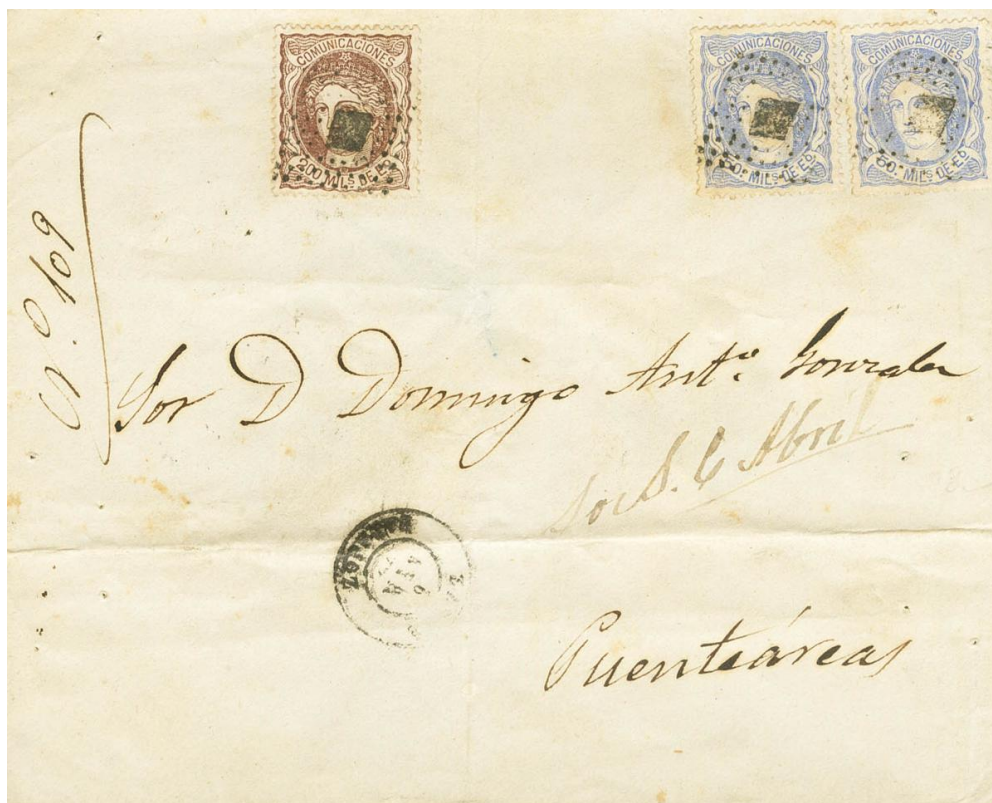 COMUNICACIONES
200 MILS DE Eo
COMUNICACIONES
50. MILS DE Eo
COMUNICACIONES
50. MILS DE Eo
N.º 109
Sor D Domingo Antº. Gonzalez
S. C Abril
Puenteáreas